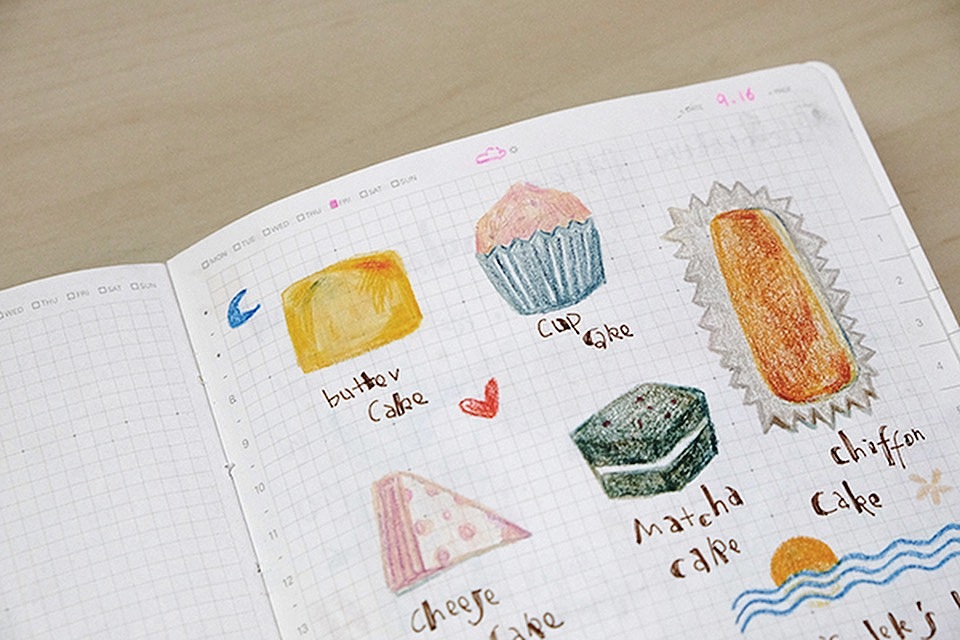 9.16
MON TUE WED THU FRI SAT SUN
WED THU FRI SAT SUN
butter
Cake
Cup
Cake
chiffon
Cake
Matcha
cake
cheese
Cake
8
9
10
11
12
13
1
2
3
4
5